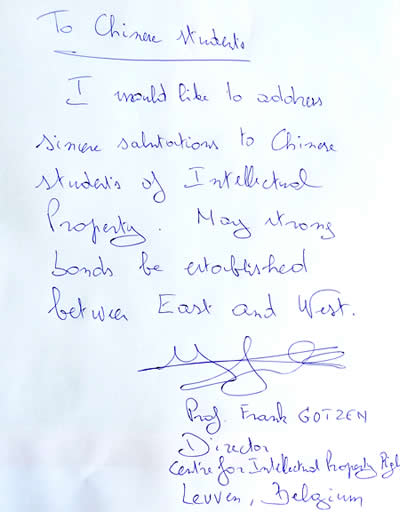 To Chinese students
I would like to address
sincere salutations to Chinese
students of Intellectual
Property. May strong
bonds be established
between East and West.
Prof. Frank GOTZEN
Director
Centre for Intellectual Property Righ
Leuven, Belgium